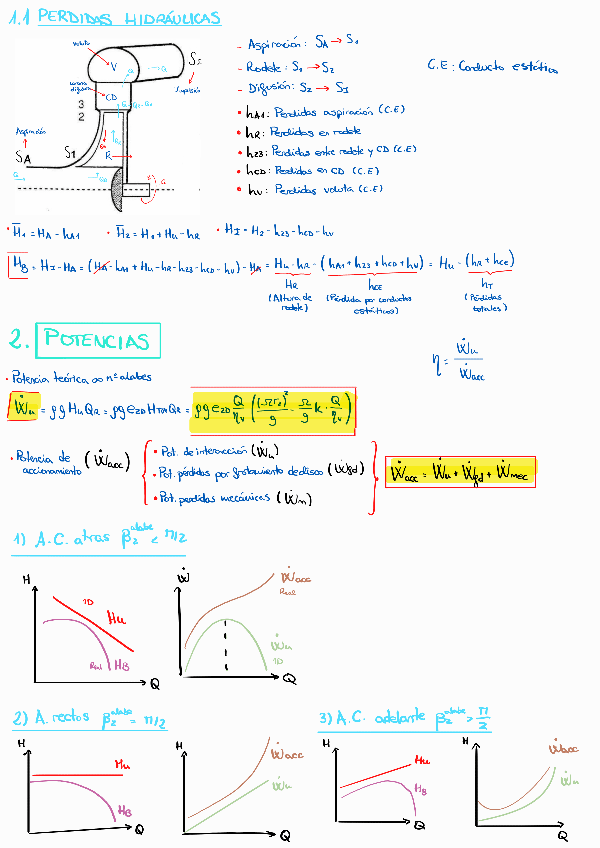 1.1 PERDIDAS HIDRÁULICAS
Voluta
V
S_I
Supulsión
corona difusora
CD
3
2
Aspiración
S_A
S1
R
Q
- Aspiración: S_A → S_1
- Rodete: S_1 → S_2
- Difusión: S_2 → S_I
C.E: Conducto estático
• h_A1: Perdidas aspiración (C.E)
• h_R: Perdidas en rodete
• h_23: Perdidas entre rodete y CD (C.E)
• h_CD: Perdidas en CD (C.E)
• h_V: Perdidas voluta (C.E)
• H_1 = H_A - h_A1 • H_2 = H_1 + H_u - h_R • H_I = H_2 - h_23 - h_CD - h_V
H_B = H_I - H_A = (H_A - h_A1 + H_u - h_R - h_23 - h_CD - h_V) - H_A = H_u - h_R - (h_A1 + h_23 + h_CD + h_V) = H_u - (h_R + h_CE)
H_R
(Altura de rodete)
h_CE
(Pérdida por conductos estáticos)
h_T
(Pérdidas totales)
2. POTENCIAS
η = Ẇ_u / Ẇ_acc
• Potencia teórica ∞ nº alabes
Ẇ_u = ρg H_u Q_R = ρg e_2D H_T∞ Q_R = ρg e_2D Q/η_v ((Ω r_2)²/g - Ω/g k · Q/η_v)
• Potencia de accionamiento (Ẇ_acc)
• Pot. de interacción (Ẇ_u)
• Pot. pérdidas por frotamiento de disco (Ẇ_fd)
• Pot. perdidas mecánicas (Ẇ_m)
Ẇ_acc = Ẇ_u + Ẇ_fd + Ẇ_mec
1) A.C. atras β_2^alabe < π/2
H
1D
H_u
Real
H_B
Q
Ẇ
Ẇ_acc
Real
Ẇ_u
1D
Q
2) A. rectos β_2^alabe = π/2
H
H_u
H_B
Q
H
Ẇ_acc
Ẇ_u
Q
3) A.C. adelante β_2^alabe > π/2
H
H_u
H_B
Q
H
Ẇ_acc
Ẇ_u
Q